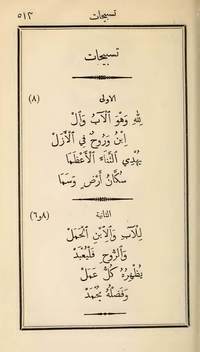 تسبيحات ٥١٣
تسبيحات
الاولى (٨)
لِلهِ وَهْوَ ٱلْآبُ وَٱلْ
اِبْنُ وَرُوحٌ فِي ٱلْأَزَلْ
يُهْدِي ٱلثَّنَاءَ ٱلْأَعْظَمَا
سُكَّانُ أَرْضٍ وَسَمَا
الثانية (٨و٦)
لِلآبِ وَٱلِٱبْنِ ٱلْحَمَلْ
وَٱلرُّوحِ فَلْيُعْبَدْ
يُظْهِرُهُ كُلُّ عَمَلْ
وَفَضْلُهُ يُحْمَدْ